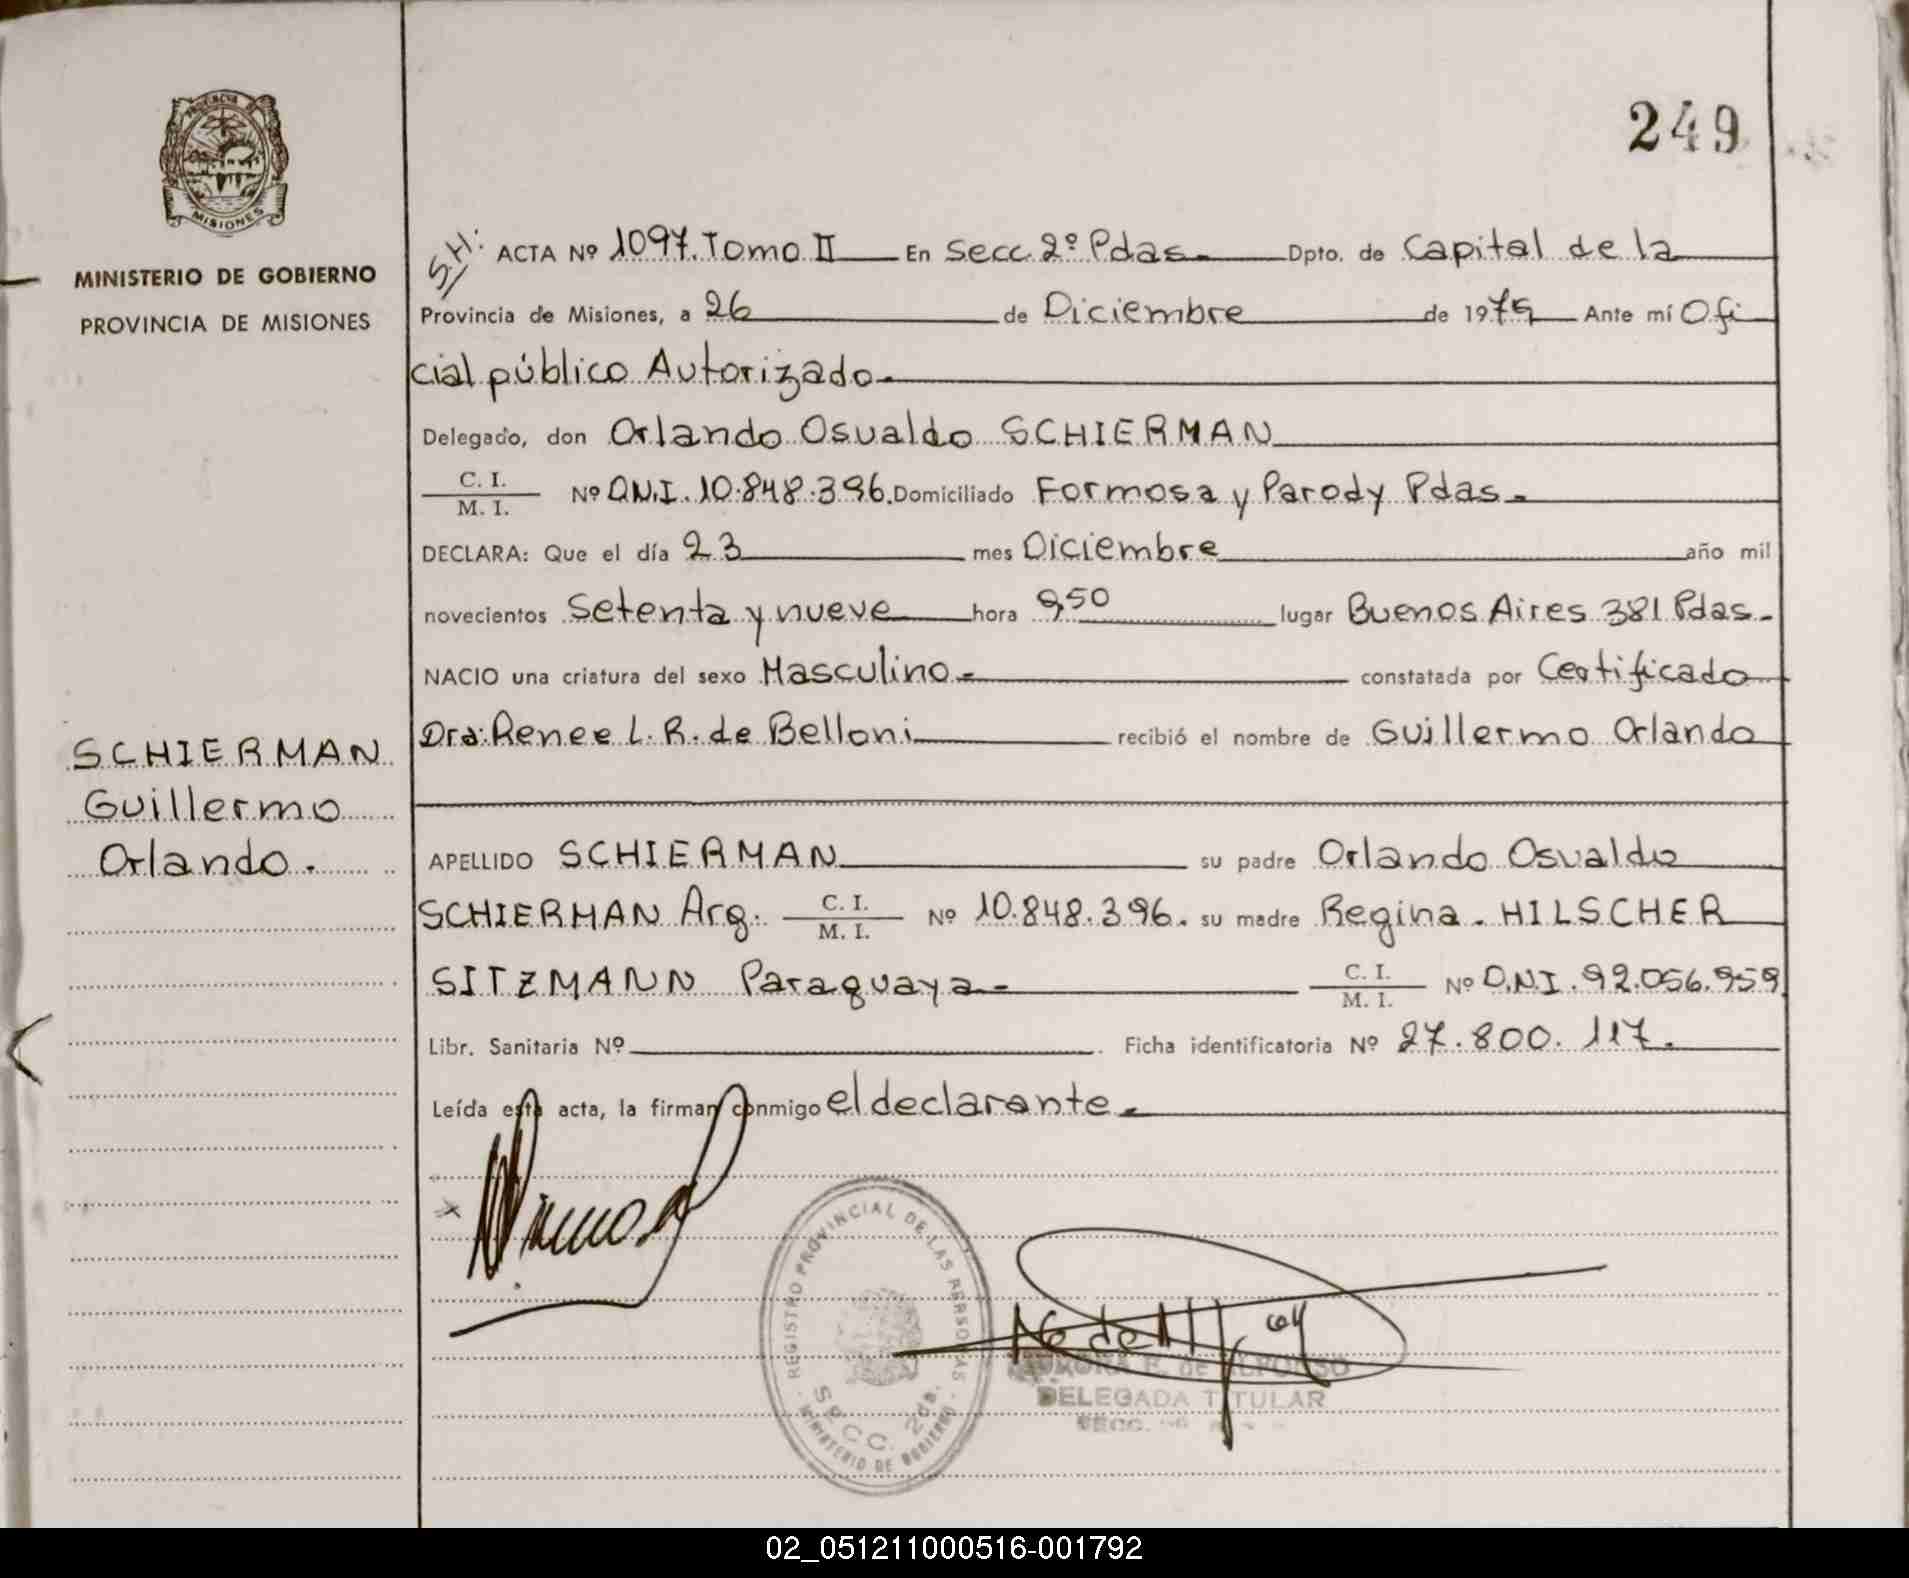 249
PROVINCIA DE
MISIONES
MINISTERIO DE GOBIERNO
PROVINCIA DE MISIONES
S/H: ACTA Nº 1097. Tomo II En Secc. 2º Pdas. Dpto. de Capital de la
Provincia de Misiones, a 26 de Diciembre de 1979 Ante mí Ofi
cial público Autorizado.
Delegado, don Orlando Osvaldo SCHIERMAN
C. I.
M. I. Nº D.N.I. 10.848.396. Domiciliado Formosa y Parody Pdas.
DECLARA: Que el día 23 mes Diciembre año mil
novecientos Setenta y nueve hora 9,50 lugar Buenos Aires 381 Pdas.
NACIO una criatura del sexo Masculino. constatada por Certificado
Dra: Renee L. R. de Belloni recibió el nombre de Guillermo Orlando
SCHIERMAN
Guillermo
Orlando.
APELLIDO SCHIERMAN su padre Orlando Osvaldo
SCHIERMAN Arg. C. I. M. I. Nº 10.848.396. su madre Regina. HILSCHER
SITZMANN Paraguaya. C. I. M. I. Nº D.N.I. 92.056.959
Libr. Sanitaria Nº . Ficha identificatoria Nº 27.800.117.
Leída esta acta, la firman conmigo el declarante.
REGISTRO PROVINCIAL DE LAS PERSONAS
SECC. 2da.
MINISTERIO DE GOBIERNO
de ALFONSO
DELEGADA TITULAR
SECC.
02_051211000516-001792